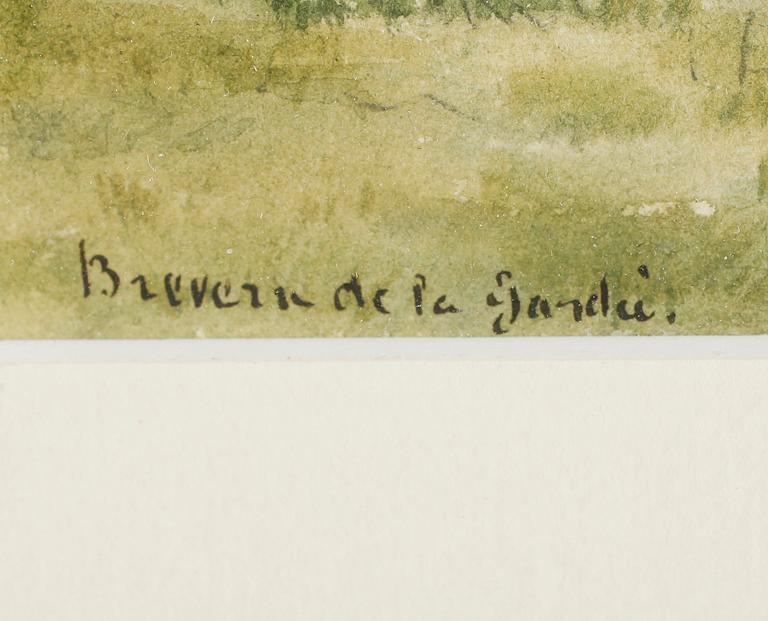 Brevern de la Gardie.